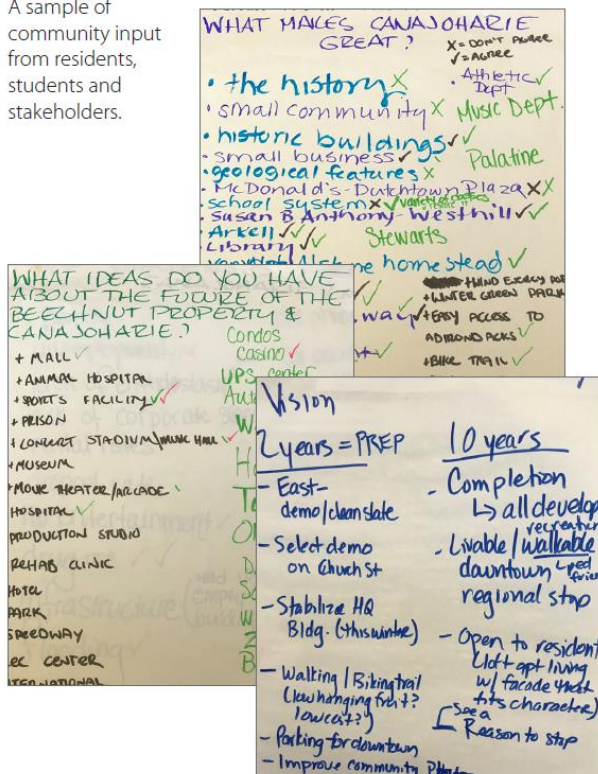 A sample of
community input
from residents,
students and
stakeholders.
WHAT MAKES CANAJOHARIE
GREAT?
X = DON'T AGREE
✓ = AGREE
• the history X
• small community X
• historic buildings ✓✓
• small business ✓
• geological features X
• McDonald's - Dutchtown Plaza XX
• school system X ✓
• Susan B Anthony - Westhill ✓✓
• Arkell ✓✓
• Library ✓✓
homestead ✓
• Athletic ✓
Dept
Music Dept.
Palatine
Stewarts
way ✓
+ WIND ENERGY
+ WINTER GREEN PARK
+ EASY ACCESS TO
ADIRONDACKS ✓
+ BIKE TRAIL ✓
WHAT IDEAS DO YOU HAVE
ABOUT THE FUTURE OF THE
BEECHNUT PROPERTY &
CANAJOHARIE?
+ MALL ✓
+ ANIMAL HOSPITAL
+ SPORTS FACILITY ✓✓
+ PRISON
+ CONCERT STADIUM/MUSIC HALL ✓
+ MUSEUM
+ MOVIE THEATER/ARCADE
HOSPITAL ✓
PRODUCTION STUDIO
REHAB CLINIC
HOTEL
PARK
SPEEDWAY
REC CENTER
INTERNATIONAL
Condos
Casino ✓
UPS center
Vision
2 years = PREP
- East-
demo/clean slate
- Select demo
on Church St
- Stabilize HQ
Bldg. (this winter)
- Walking / Biking trail
(low hanging fruit?
low cost?)
- Parking for downtown
- Improve community
10 years
- Completion
↳ all develop
recreation
- Livable / walkable
downtown
regional stop
- Open to resident
(loft apt living
w/ facade that
fits character)
See a
Reason to stop